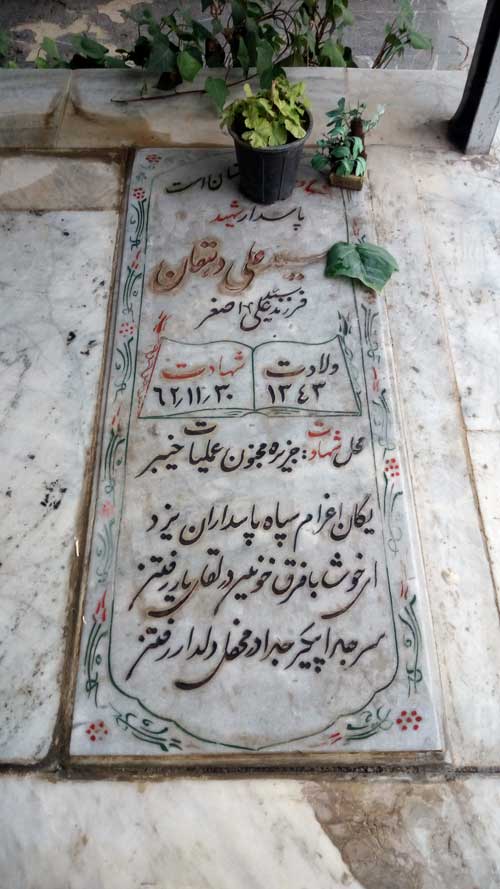 ستان است
پاسدار شهید
سید علی دهقان
فرزند سید علی اصغر
ولادت شهادت
۱۳۴۳ ۶۲/۱۱/۳۰
محل شهادت: جزیره مجنون عملیات خیبر
یگان اعزام سپاه پاسداران یزد
ای خوشا با فرق خونین در لقای یار رفتن
سر جدا پیکر جدا در محفل دلدار رفتن